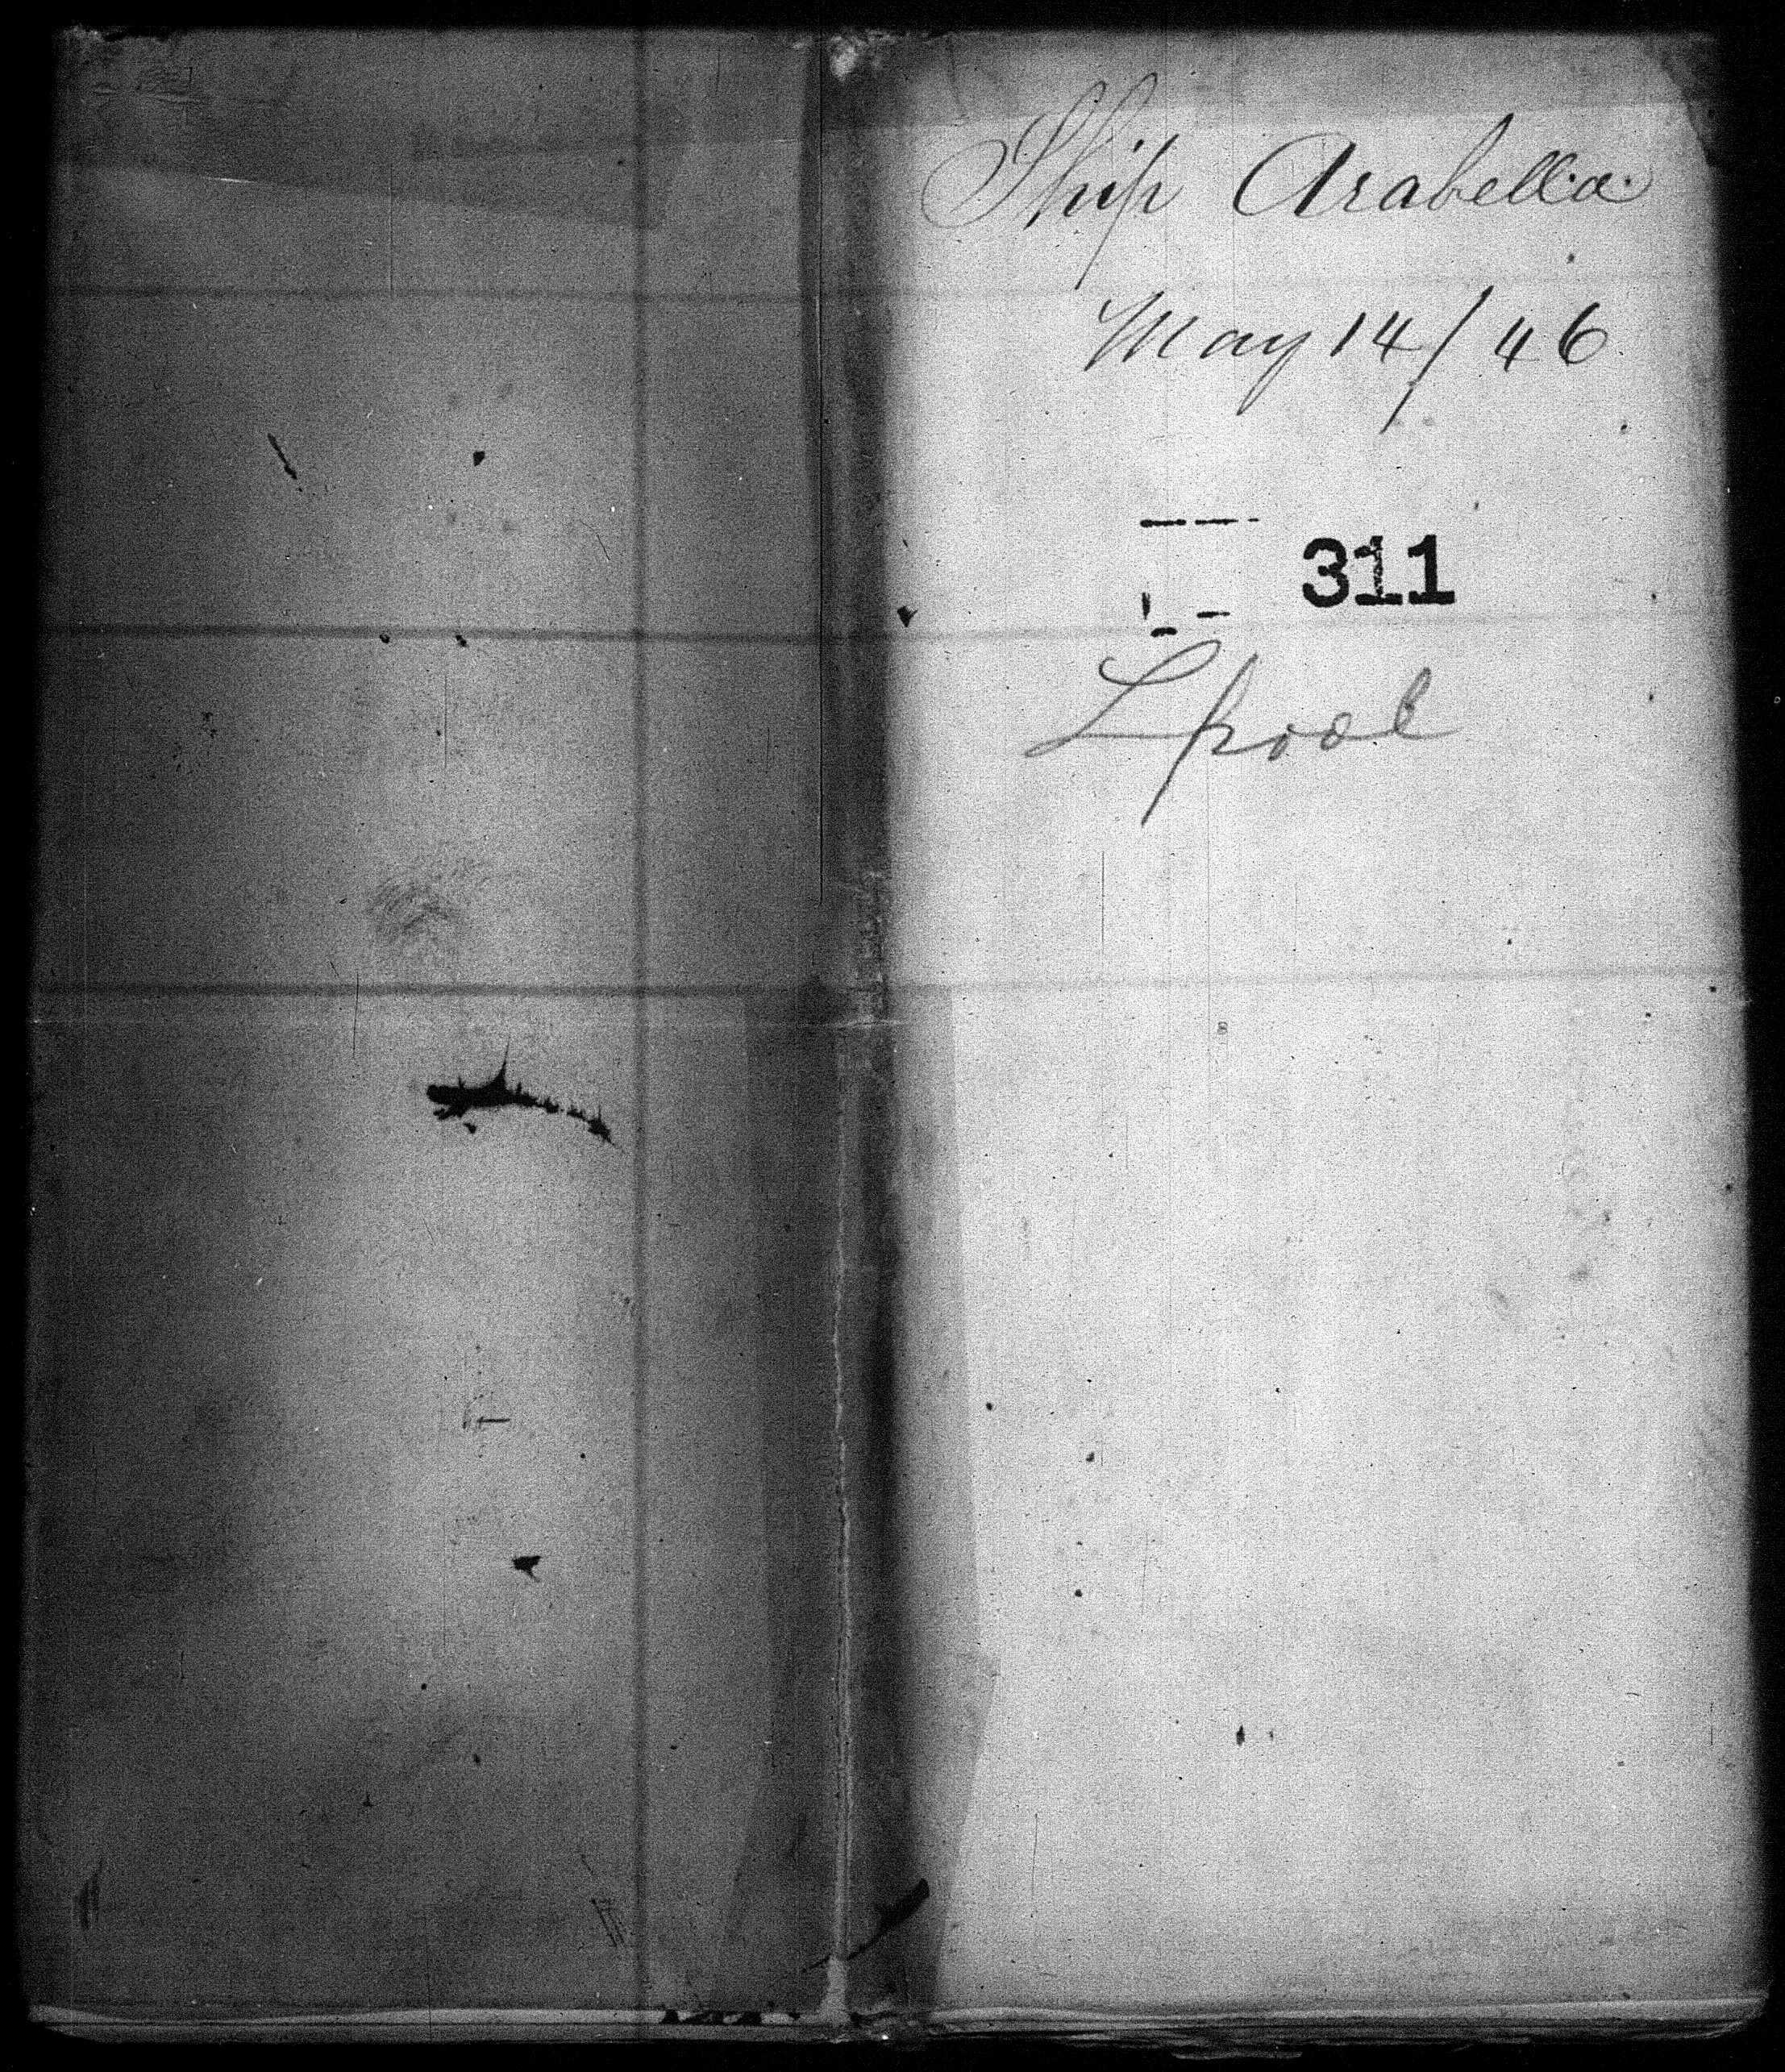 Ship Arabella
May 14/46
311
Lpool